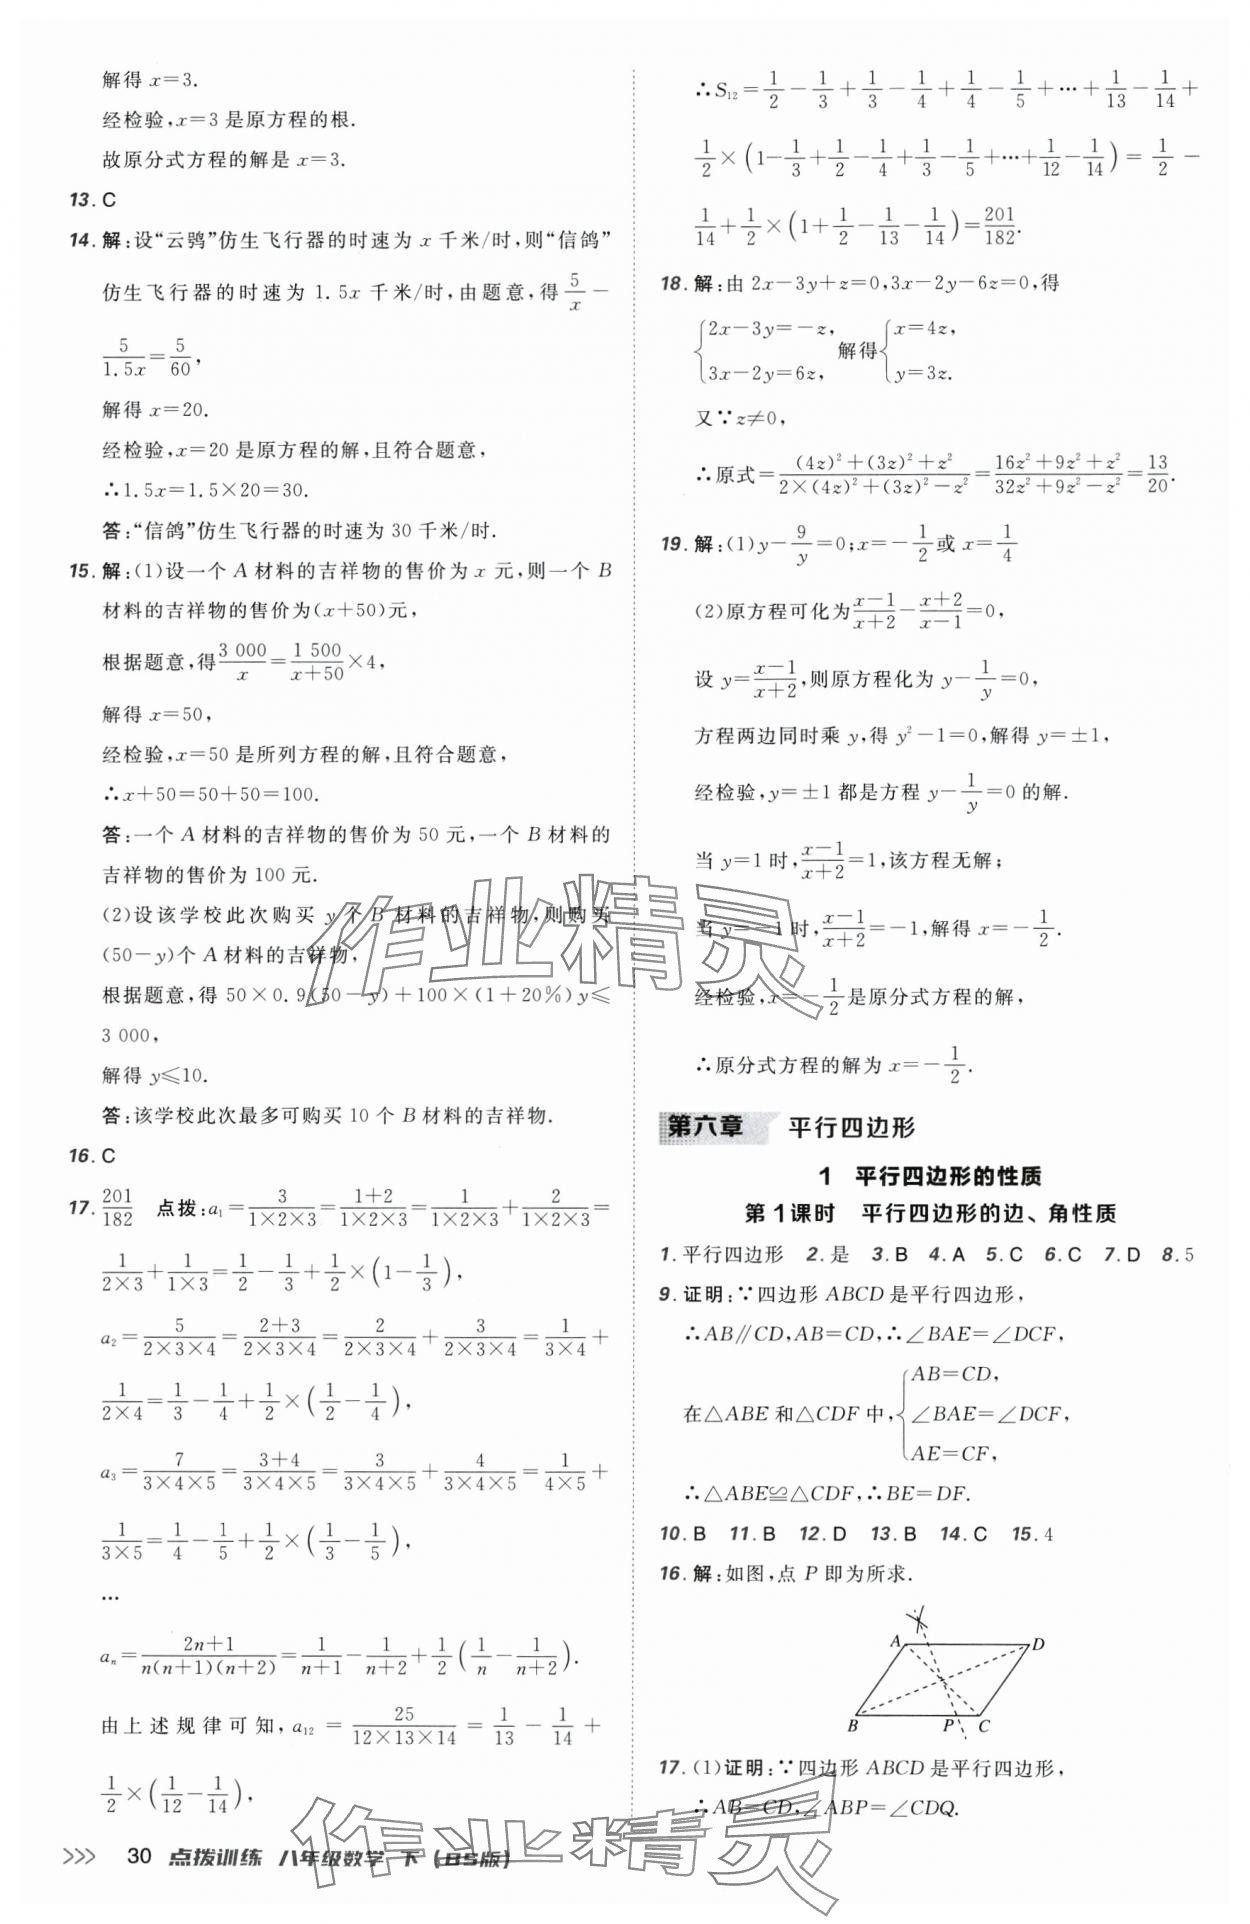 解得 x=3.
经检验,x=3 是原方程的根.
故原分式方程的解是 x=3.
13. C
14. 解:设“云鸮”仿生飞行器的时速为 x 千米/时,则“信鸽”
仿生飞行器的时速为 1.5x 千米/时,由题意,得 5/x −
5/1.5x = 5/60,
解得 x=20.
经检验,x=20 是原方程的解,且符合题意,
∴1.5x=1.5×20=30.
答:“信鸽”仿生飞行器的时速为 30 千米/时.
15. 解:(1)设一个 A 材料的吉祥物的售价为 x 元,则一个 B
材料的吉祥物的售价为(x+50)元,
根据题意,得 3 000/x = 1 500/(x+50) ×4,
解得 x=50,
经检验,x=50 是所列方程的解,且符合题意,
∴x+50=50+50=100.
答:一个 A 材料的吉祥物的售价为 50 元,一个 B 材料的
吉祥物的售价为 100 元.
(2)设该学校此次购买 y 个 B 材料的吉祥物,则购买
(50−y)个 A 材料的吉祥物,
根据题意,得 50×0.9(50−y)+100×(1+20%)y≤
3 000,
解得 y≤10.
答:该学校此次最多可购买 10 个 B 材料的吉祥物.
16. C
17. 201/182 点拨:a₁ = 3/(1×2×3) = (1+2)/(1×2×3) = 1/(1×2×3) + 2/(1×2×3) =
1/(2×3) + 1/(1×3) = 1/2 − 1/3 + 1/2 × (1 − 1/3),
a₂ = 5/(2×3×4) = (2+3)/(2×3×4) = 2/(2×3×4) + 3/(2×3×4) = 1/(3×4) +
1/(2×4) = 1/3 − 1/4 + 1/2 × (1/2 − 1/4),
a₃ = 7/(3×4×5) = (3+4)/(3×4×5) = 3/(3×4×5) + 4/(3×4×5) = 1/(4×5) +
1/(3×5) = 1/4 − 1/5 + 1/2 × (1/3 − 1/5),
…
aₙ = (2n+1)/(n(n+1)(n+2)) = 1/(n+1) − 1/(n+2) + 1/2 (1/n − 1/(n+2)).
由上述规律可知,a₁₂ = 25/(12×13×14) = 1/13 − 1/14 +
1/2 × (1/12 − 1/14),
∴S₁₂ = 1/2 − 1/3 + 1/3 − 1/4 + 1/4 − 1/5 + … + 1/13 − 1/14 +
1/2 × (1 − 1/3 + 1/2 − 1/4 + 1/3 − 1/5 + … + 1/12 − 1/14) = 1/2 −
1/14 + 1/2 × (1 + 1/2 − 1/13 − 1/14) = 201/182.
18. 解:由 2x−3y+z=0,3x−2y−6z=0,得
{2x−3y=−z, 3x−2y=6z, 解得 {x=4z, y=3z.
又∵z≠0,
∴原式 = ((4z)²+(3z)²+z²)/(2×(4z)²+(3z)²−z²) = (16z²+9z²+z²)/(32z²+9z²−z²) = 13/20.
19. 解:(1)y − 9/y = 0;x = −1/2 或 x = 1/4
(2)原方程可化为 (x−1)/(x+2) − (x+2)/(x−1) = 0,
设 y = (x−1)/(x+2),则原方程化为 y − 1/y = 0,
方程两边同时乘 y,得 y²−1=0,解得 y=±1,
经检验,y=±1 都是方程 y − 1/y = 0 的解.
当 y=1 时,(x−1)/(x+2) = 1,该方程无解;
当 y=−1 时,(x−1)/(x+2) = −1,解得 x = −1/2.
经检验,x = −1/2 是原分式方程的解,
∴原分式方程的解为 x = −1/2.
第六章 平行四边形
1 平行四边形的性质
第1课时 平行四边形的边、角性质
1. 平行四边形 2. 是 3. B 4. A 5. C 6. C 7. D 8. 5
9. 证明:∵四边形 ABCD 是平行四边形,
∴AB∥CD,AB=CD,∴∠BAE=∠DCF,
在△ABE 和△CDF 中,{AB=CD, ∠BAE=∠DCF, AE=CF,
∴△ABE≌△CDF,∴BE=DF.
10. B 11. B 12. D 13. B 14. C 15. 4
16. 解:如图,点 P 即为所求.
A D
B P C
17. (1)证明:∵四边形 ABCD 是平行四边形,
∴AB=CD,∠ABP=∠CDQ.
30 点拨训练 八年级数学 下 (BS版)
作业精灵
作业精灵